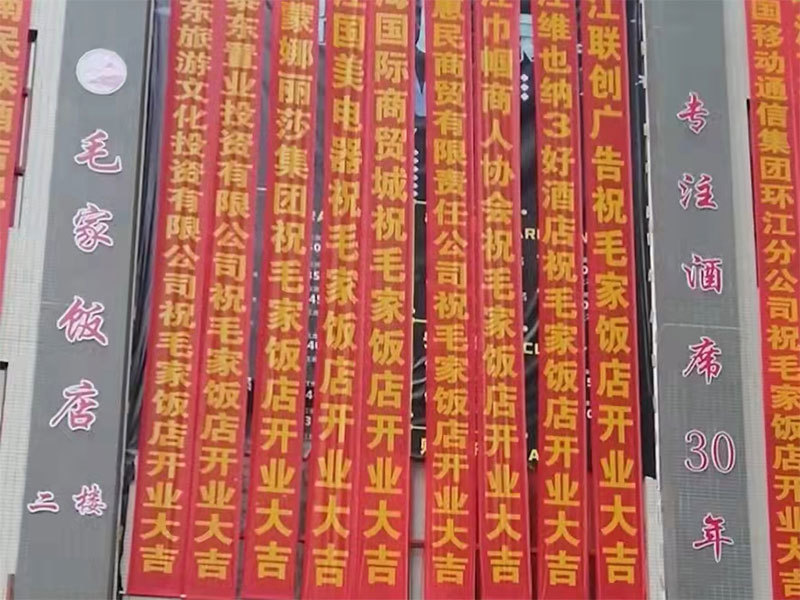 南民族酒店
毛家饭店
二楼
东旅游文化投资有限公司祝毛家饭店开业大吉
泰东置业投资有限公司祝毛家饭店开业大吉
蒙娜丽莎集团祝毛家饭店开业大吉
江国美电器祝毛家饭店开业大吉
国际商贸城祝毛家饭店开业大吉
惠民商贸有限责任公司祝毛家饭店开业大吉
江巾帼商人协会祝毛家饭店开业大吉
江维也纳3好酒店祝毛家饭店开业大吉
江联创广告祝毛家饭店开业大吉
专注酒席30年
国移动通信集团环江分公司祝毛家饭店开业大吉